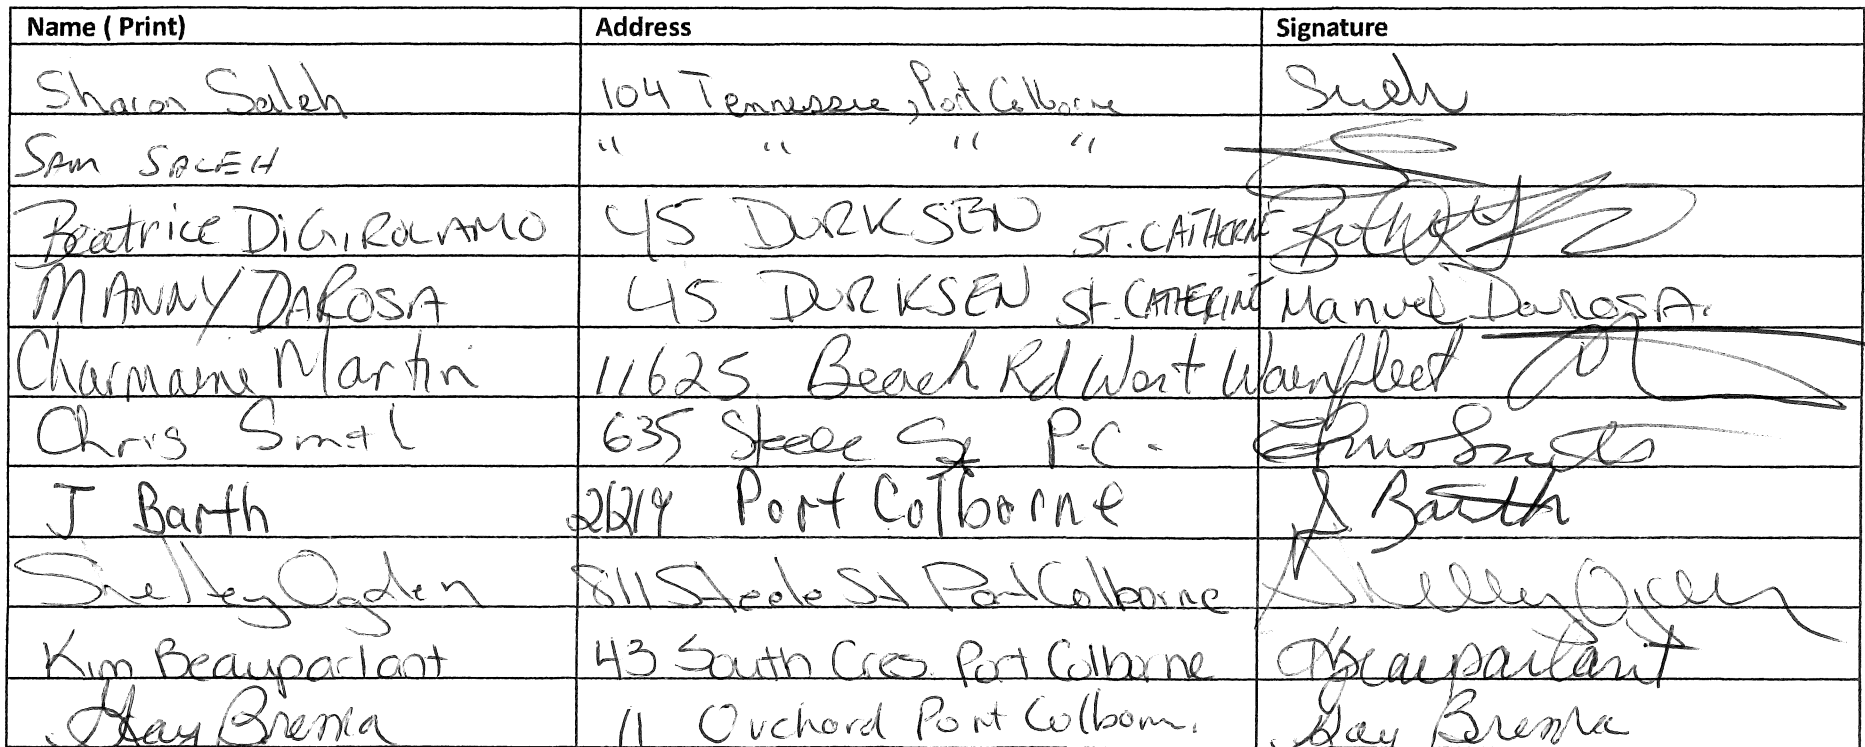 Name ( Print) Address Signature
Sharon Saleh 104 Tennessee, Port Colborne
SAM SALEH " " " "
Beatrice DiGIROLAMO 45 DURKSEN ST. CATHERINE
MANNY DAROSA 45 DURKSEN St. CATHERINE Manuel DaRosA.
Charmaine Martin 11625 Beach Rd West Wainfleet
Chris 635 Steele St P.C.
J Barth Port Colborne J Barth
Shelley Ogden 811 Steele St Port Colborne Shelley Ogden
Kim Beauparlant 43 South Cres. Port Colborne KBeauparlant
Kay Brema 11 Orchard Port Colborne. Kay Brema